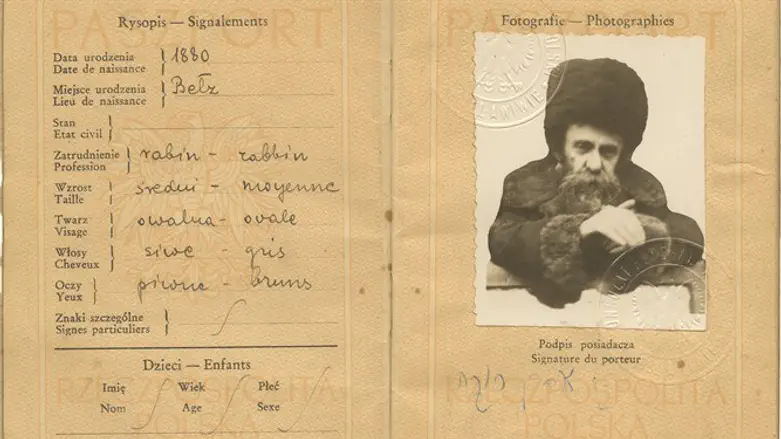 PASZPORT
Rysopis — Signalements
Data urodzenia
Date de naissance
1880
Miejsce urodzenia
Lieu de naissance
Bełz
Stan
Etat civil
Zatrudnienie
Profession
rabin - rabbin
Wzrost
Taille
średni - moyenne
Twarz
Visage
owalna - ovale
Włosy
Cheveux
siwe - gris
Oczy
Yeux
piwne - bruns
Znaki szczególne
Signes particuliers
Dzieci — Enfants
Imię Wiek Płeć
Nom Age Sexe
RZECZPOSPOLITA
POLSKA
Fotografie — Photographies
Podpis posiadacza
Signature du porteur
RZECZPOSPOLITA
POLSKA